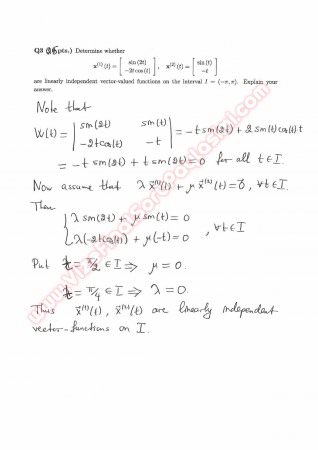 Q3 (25 pts.) Determine whether
x⁽¹⁾(t) = [ sin(2t) ; −2t cos(t) ] , x⁽²⁾(t) = [ sin(t) ; −t ]
are linearly independent vector-valued functions on the interval I = (−π, π). Explain your
answer.
Note that
W(t) = | sin(2t) sin(t) ; −2t cos(t) −t | = −t sin(2t) + 2 sin(t) cos(t) t
= −t sin(2t) + t sin(2t) = 0 for all t ∈ I.
Now assume that λ x⃗⁽¹⁾(t) + μ x⃗⁽²⁾(t) = 0⃗, ∀t ∈ I.
Then
{ λ sin(2t) + μ sin(t) = 0
λ(−2t cos(t)) + μ(−t) = 0 , ∀t ∈ I
Put t = π/2 ∈ I ⇒ μ = 0.
t = π/4 ∈ I ⇒ λ = 0.
Thus x⃗⁽¹⁾(t), x⃗⁽²⁾(t) are linearly independent
vector-functions on I.